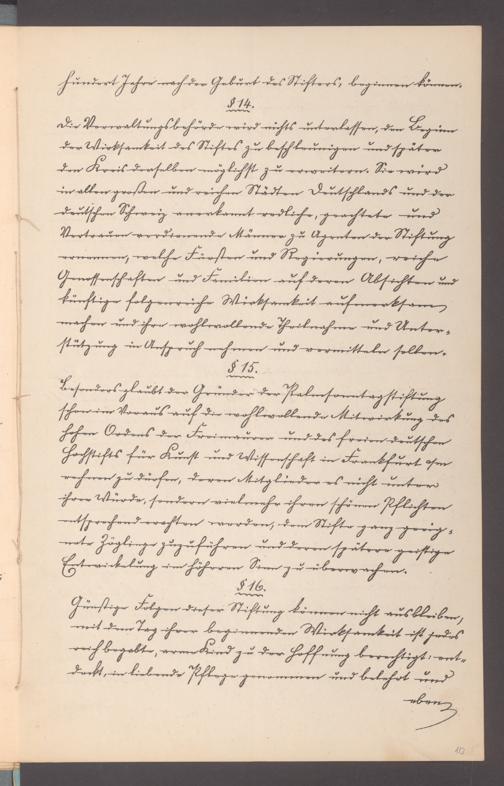 hundert Jahre nach der Geburt des Stifters, beginnen können.
§ 14.
Die Verwaltungsbehörde wird nichts unterlassen, den Beginn
der Wirksamkeit des Stiftes zu beschleunigen und später
den Kreis derselben möglichst zu erweitern. Sie wird
in allen großen und reichen Städten Deutschlands und der
deutschen Schweiz anerkannt redliche, geachtete und
Vertrauen verdienende Männer zu Agenten der Stiftung
ernennen, welche Fürsten und Regierungen, reiche
Genossenschaften und Familien auf deren Absichten und
künftige folgenreiche Wirksamkeit aufmerksam
machen und ihre wohlwollende Theilnahme und Unter-
stützung in Anspruch nehmen und vermitteln sollen.
§ 15.
Besonders glaubt der Gründer der Palmsonntagstiftung
schon im Voraus auf die wohlwollende Mitwirkung des
hohen Ordens der Freimaurer und des freien deutschen
Hochstifts für Kunst und Wissenschaft in Frankfurt a/m
rechnen zu dürfen, deren Mitglieder es nicht unter
ihrer Würde, sondern vielmehr ihren schönen Pflichten
entsprechend erachten werden, dem Stifte ganz geeig-
nete Zöglinge zuzuführen und deren spätere geistige
Entwickelung im höheren Sinn zu überwachen.
§ 16.
Günstige Folgen dieser Stiftung können nicht ausbleiben,
mit dem Tag ihrer beginnenden Wirksamkeit ist jedes
reich begabte, arme Kind zu der Hoffnung berechtigt: ent-
deckt, in liebende Pflege genommen und belehrt und
eben
113